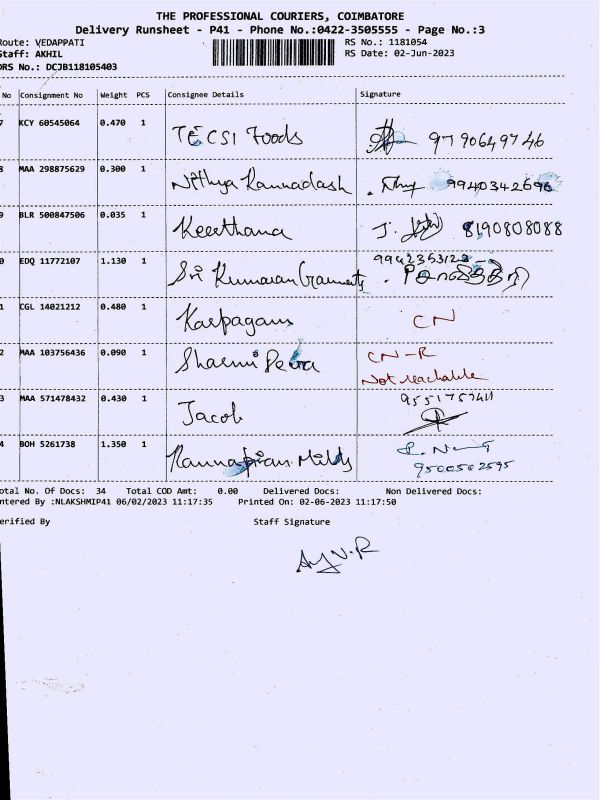 THE PROFESSIONAL COURIERS, COIMBATORE
Delivery Runsheet - P41 - Phone No.:0422-3505555 - Page No.:3
Route: VEDAPPATI RS No.: 1181054
Staff: AKHIL RS Date: 02-Jun-2023
DRS No.: DCJB118105403
No Consignment No Weight PCS Consignee Details Signature
7 KCY 60545064 0.470 1 TECSI Foods 9790649746
8 MAA 298875629 0.300 1 Nithya Kannadash 9940342696
9 BLR 500847506 0.035 1 Keerthana J. 8190808088
0 EDQ 11772107 1.130 1 Sri Kumaran Garments
1 CGL 14021212 0.480 1 Karpagam CN
2 MAA 103756436 0.090 1 Sharmi Deva CN-R
Not reachable
3 MAA 571478432 0.430 1 Jacob
4 BOH 5261738 1.350 1 Kannapiran Mills
9500502595
otal No. Of Docs: 34 Total COD Amt: 0.00 Delivered Docs: Non Delivered Docs:
ntered By :NLAKSHMIP41 06/02/2023 11:17:35 Printed On: 02-06-2023 11:17:50
erified By Staff Signature